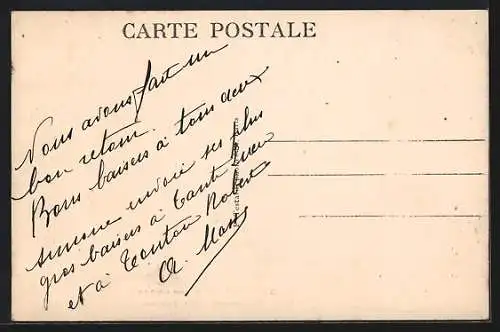 CARTE POSTALE
Nous avons fait un
bon retour.
Bons baisers à tous deux
Simone envoie ses plus
gros baisers à tante
et à tonton Robert